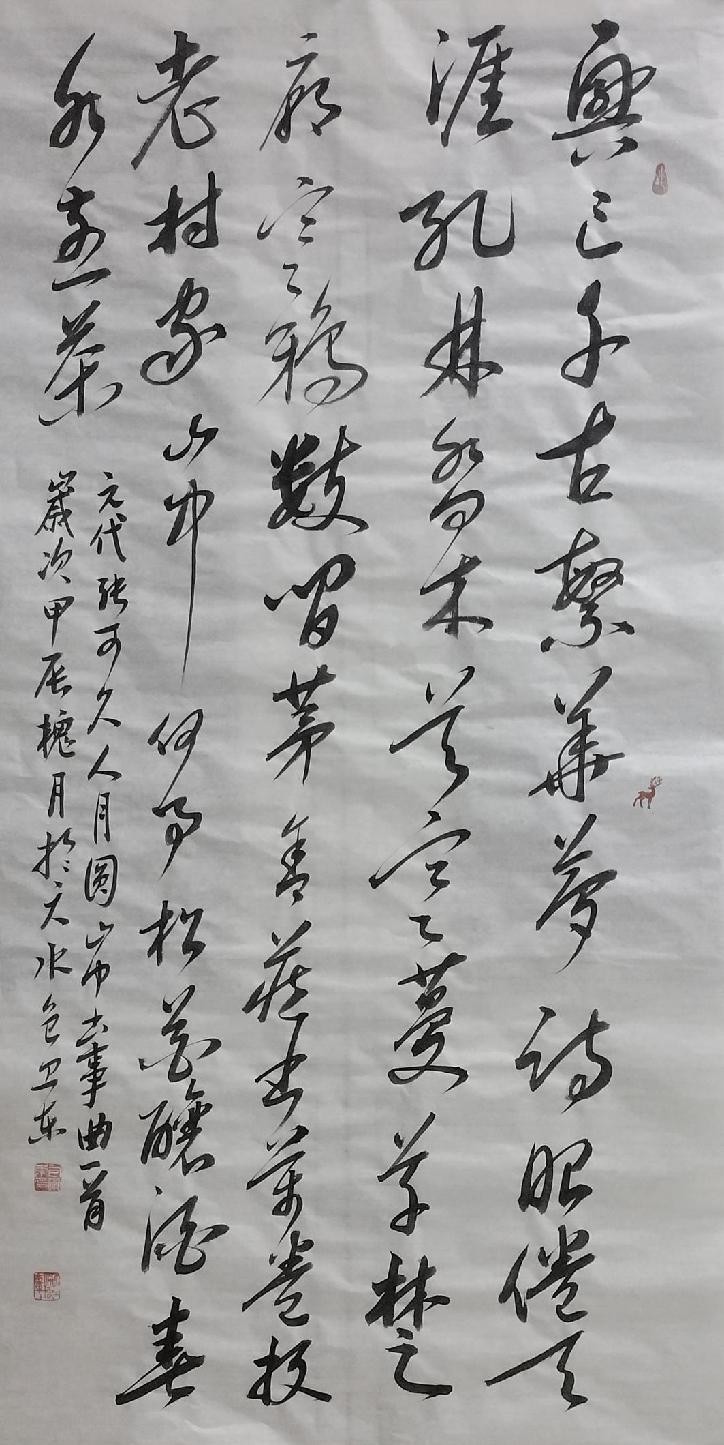 興亡千古繁華夢詩眼倦天
涯孔林喬木吴宫蔓草楚
廟寒鴉數間茅舍藏書萬卷投
老村家山中何事松花釀酒春
水煎茶
元代张可久人月圆山中书事曲一首
歲次甲辰槐月於天水包卫东